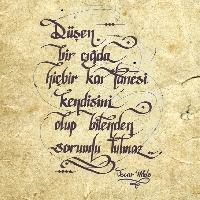 Düşen
bir çığda
hiçbir kar tanesi
kendisini
olup bitenden
sorumlu tutmaz
Oscar Wilde